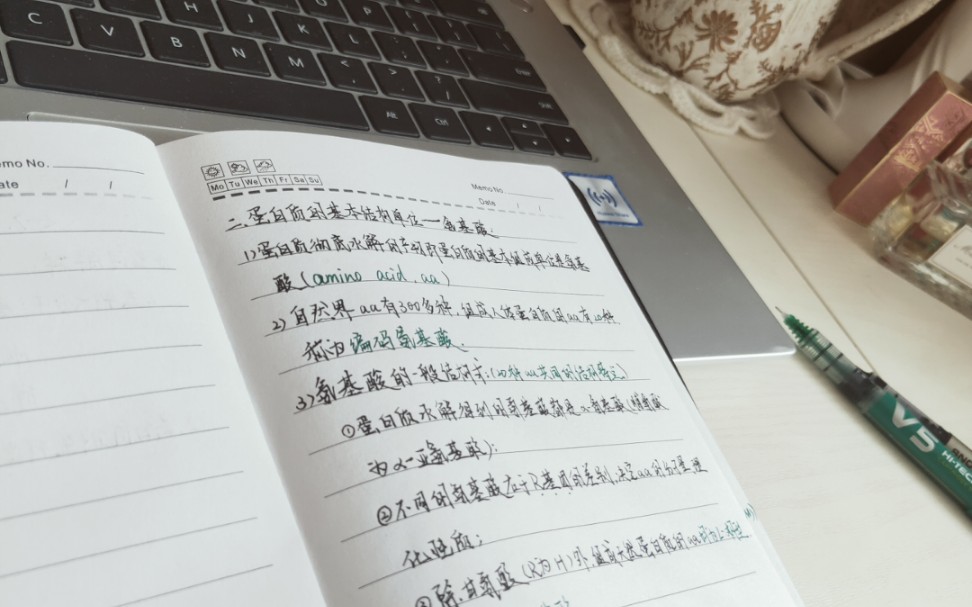 H J K L O P
V B N M
Alt Ctrl
emo No.
ate / /
Mo Tu We Th Fr Sa Su
Memo No.
Date / /
二、蛋白质的基本结构单位——氨基酸.
1)蛋白质彻底水解的产物即蛋白质的基本组成单位是氨基
酸(amino acid, aa)
2)自然界aa有300多种,组成人体蛋白质的aa有20种
称为编码氨基酸.
3)氨基酸的一般结构式:(20种aa共同的结构特点)
①蛋白质水解得到的氨基酸都是α-氨基酸(脯氨酸
为α-亚氨基酸);
②不同的氨基酸在于R基团的差别,决定aa的的理
化性质;
③除甘氨酸(R为H)外,组成天然蛋白质的aa
V5
HI-TEC